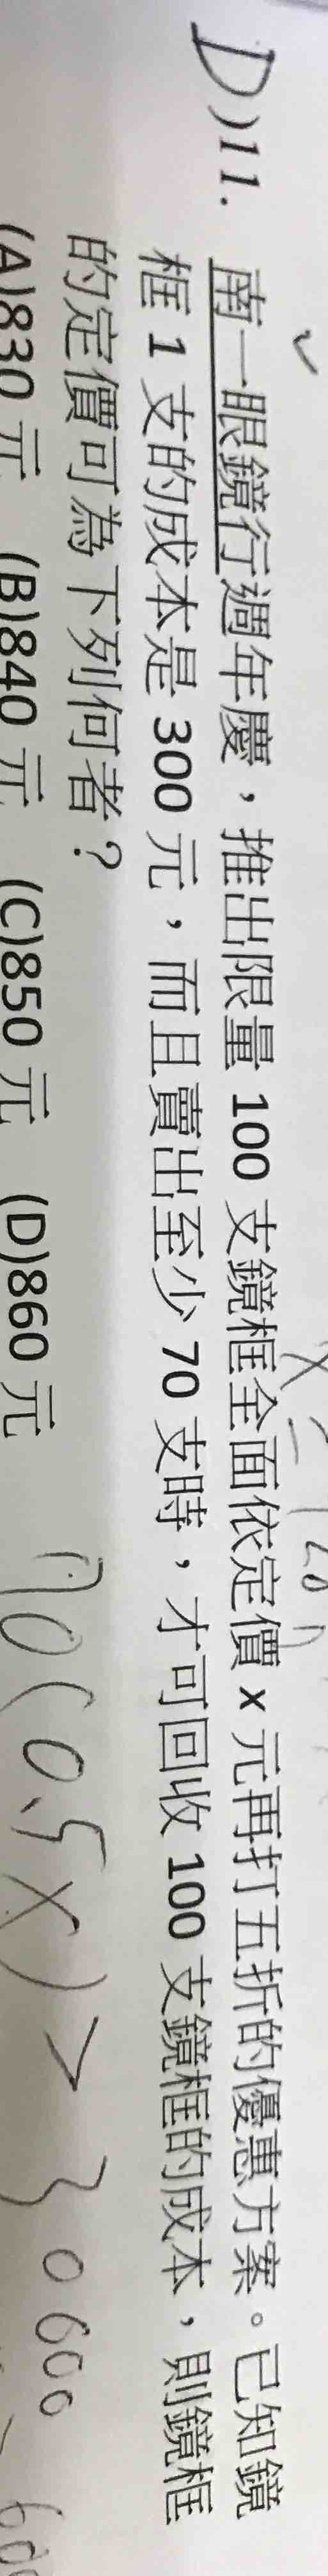 D)11. 南一眼鏡行週年慶，推出限量 100 支鏡框全面依定價 x 元再打五折的優惠方案。已知鏡
框 1 支的成本是 300 元，而且賣出至少 70 支時，才可回收 100 支鏡框的成本，則鏡框
的定價可為下列何者？
(A)830 元 (B)840 元 (C)850 元 (D)860 元
70(0.5x)>